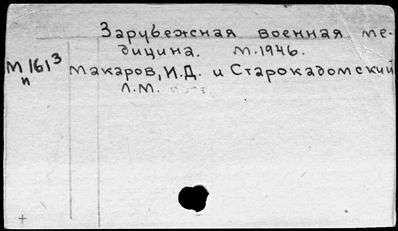 Зарубежная военная ме-
дицина. М. 1946.
М 161³ Макаров, И.Д. и Старокадомский
п Л.М.